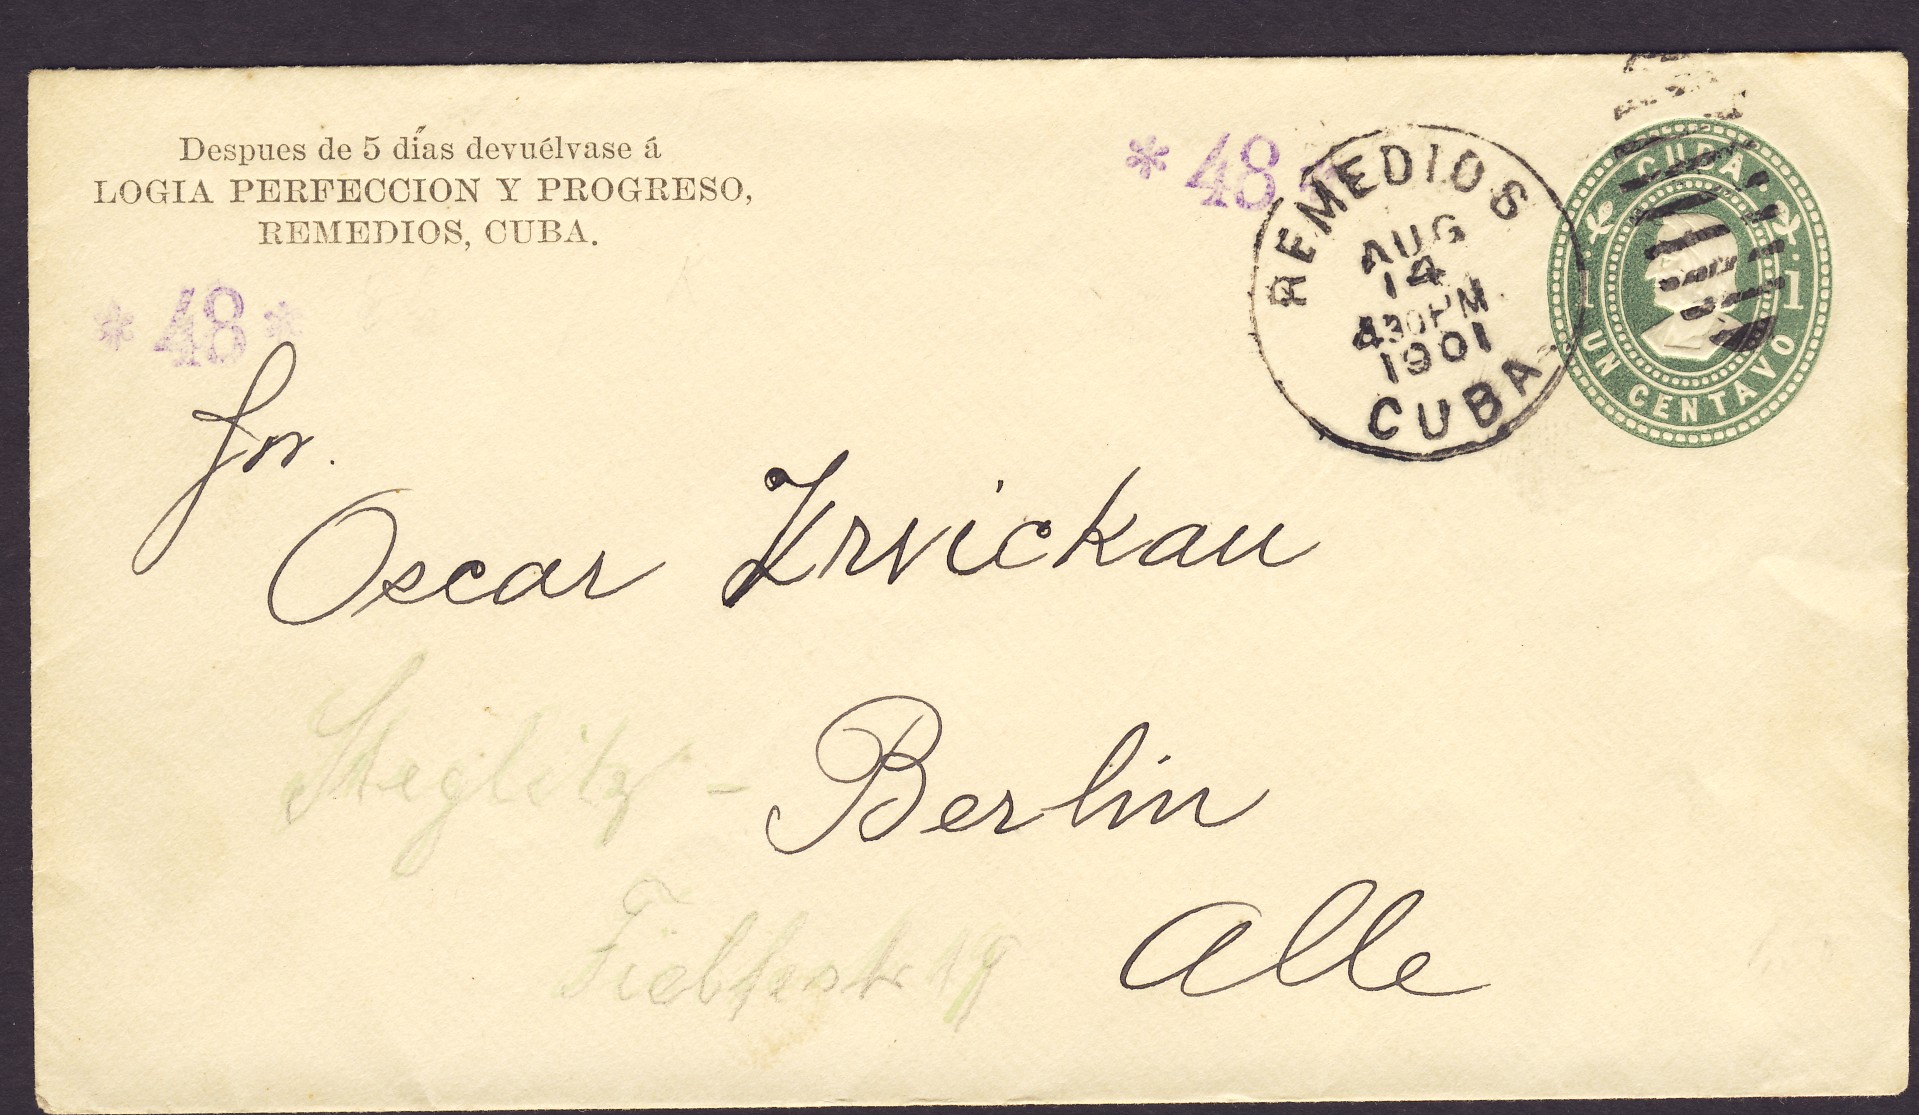 Despues de 5 días devuélvase á
LOGIA PERFECCION Y PROGRESO,
REMEDIOS, CUBA.
* 48 *
* 48 *
REMEDIOS
AUG
14
430 PM
1901
CUBA
CUBA.
1 1
UN CENTAVO
Oscar Krvickau
Steglitz -
Berlin
19
Alle